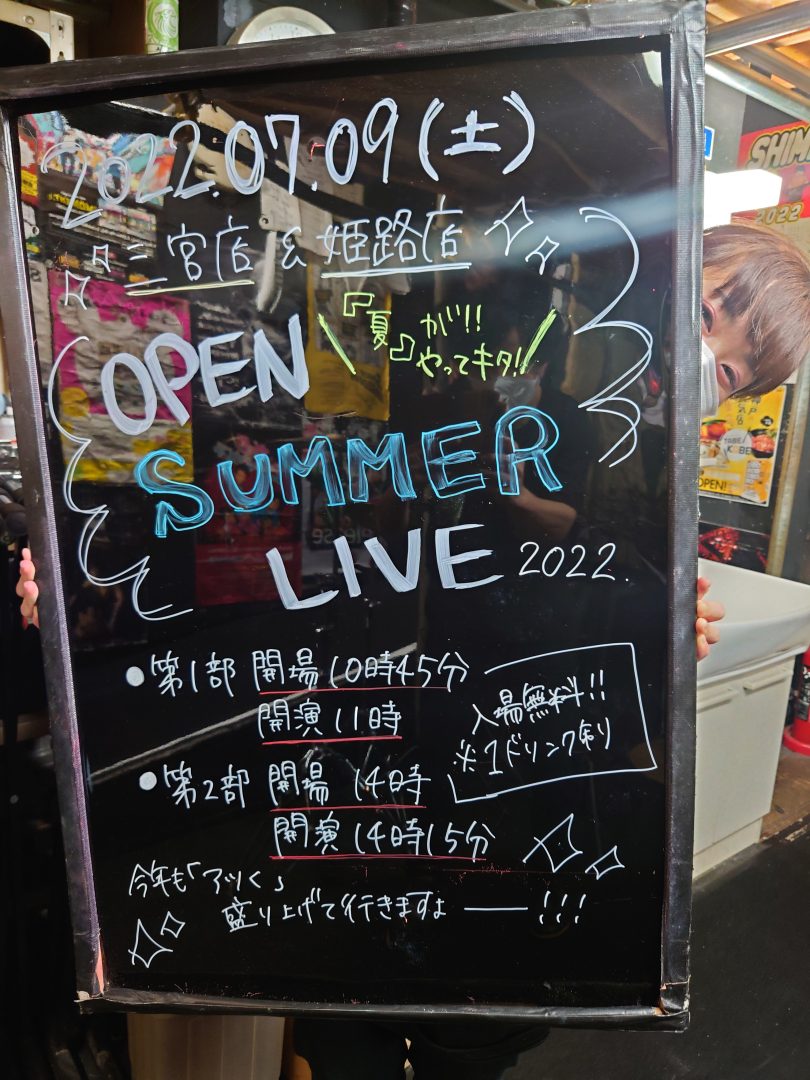 2022.07.09(土)
三宮店 & 姫路店
OPEN
『夏』が!!
やってキタ!!
SUMMER
LIVE 2022.
●第1部 開場 10時45分
開演 11時
●第2部 開場 14時
開演 14時15分
入場無料!!
※1ドリンク制り
今年も「アツく」
盛り上げて行きますよ――!!!
SHIM
2022
KOBE
OPEN!